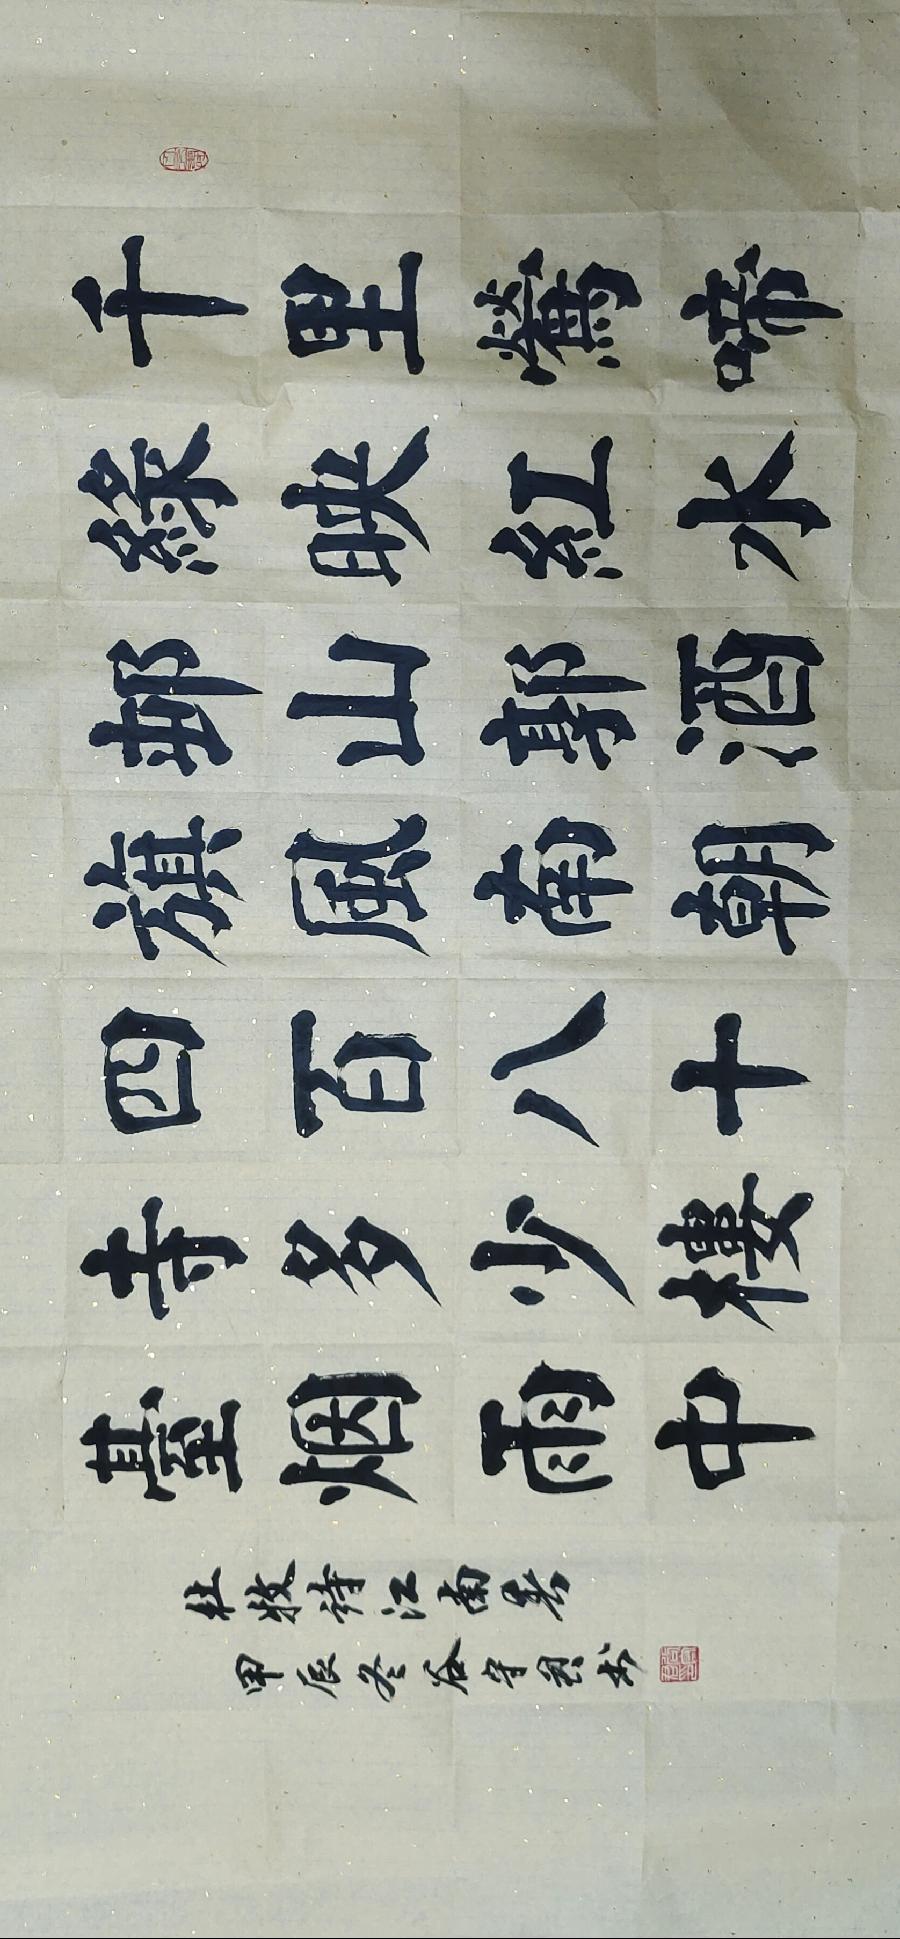 千里鶯啼
綠映紅水
邨山郭酒
旗風南朝
四百八十
寺多少樓
臺烟雨中
杜牧诗江南春
甲辰冬谷守书